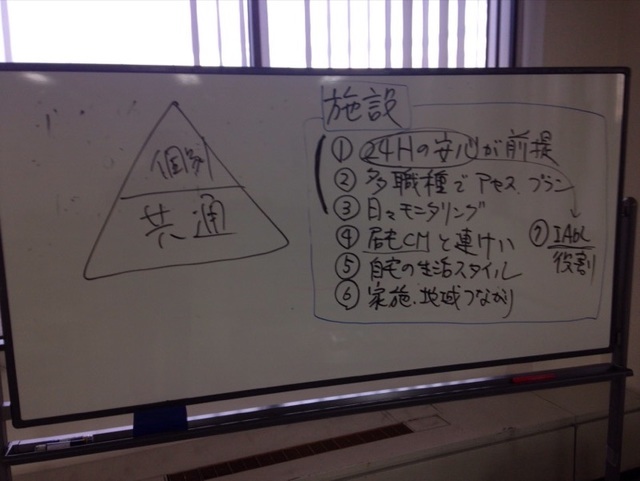 個別
共通
施設
① 24Hの安心が前提
② 多職種でアセス.プラン
③ 日々モニタリング
④ 居宅CMと連けい
⑤ 自宅の生活スタイル
⑥ 家族.地域つながり
⑦ IADL
役割